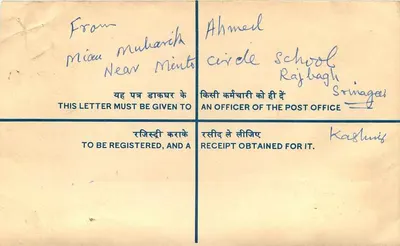 From
Mian Mubarik Ahmed
Near Minto Circle School
Rajbagh
Srinagar
यह पत्र डाकघर के किसी कर्मचारी को ही दें
THIS LETTER MUST BE GIVEN TO AN OFFICER OF THE POST OFFICE
Kashmir
रजिस्ट्री कराके रसीद ले लीजिए
TO BE REGISTERED, AND A RECEIPT OBTAINED FOR IT.